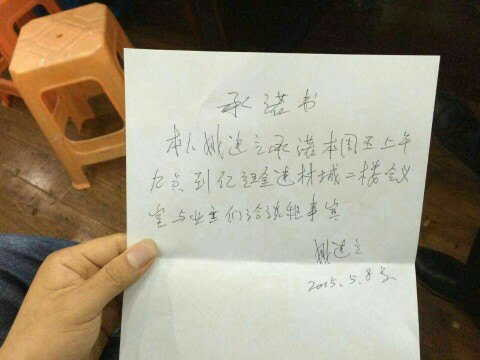 承诺书
本人姚建立承诺本周五上午
九点到仁建材城二楼会议
室与业主们洽谈事宜
姚建立
2015.5.8号